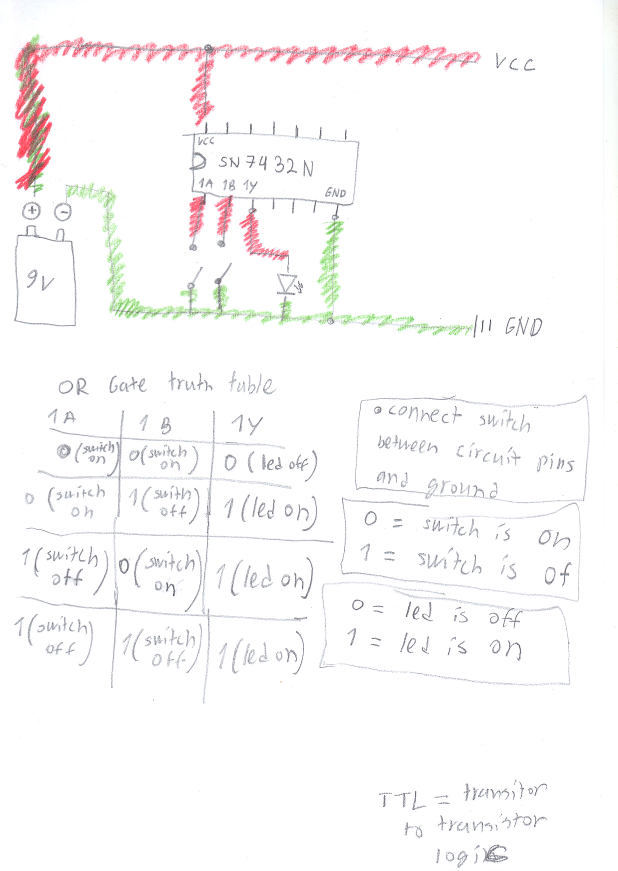 VCC
VCC
SN7432N
1A 1B 1Y GND
+ −
9V
GND
OR Gate truth table
1A 1B 1Y
0 (switch on) 0 (switch on) 0 (led off)
0 (switch on) 1 (swith off) 1 (led on)
1 (switch off) 0 (switch on) 1 (led on)
1 (switch off) 1 (switch off) 1 (led on)
• connect switch
between circuit pins
and ground
0 = switch is on
1 = switch is of
0 = led is off
1 = led is on
TTL = transitor
to transistor
logic